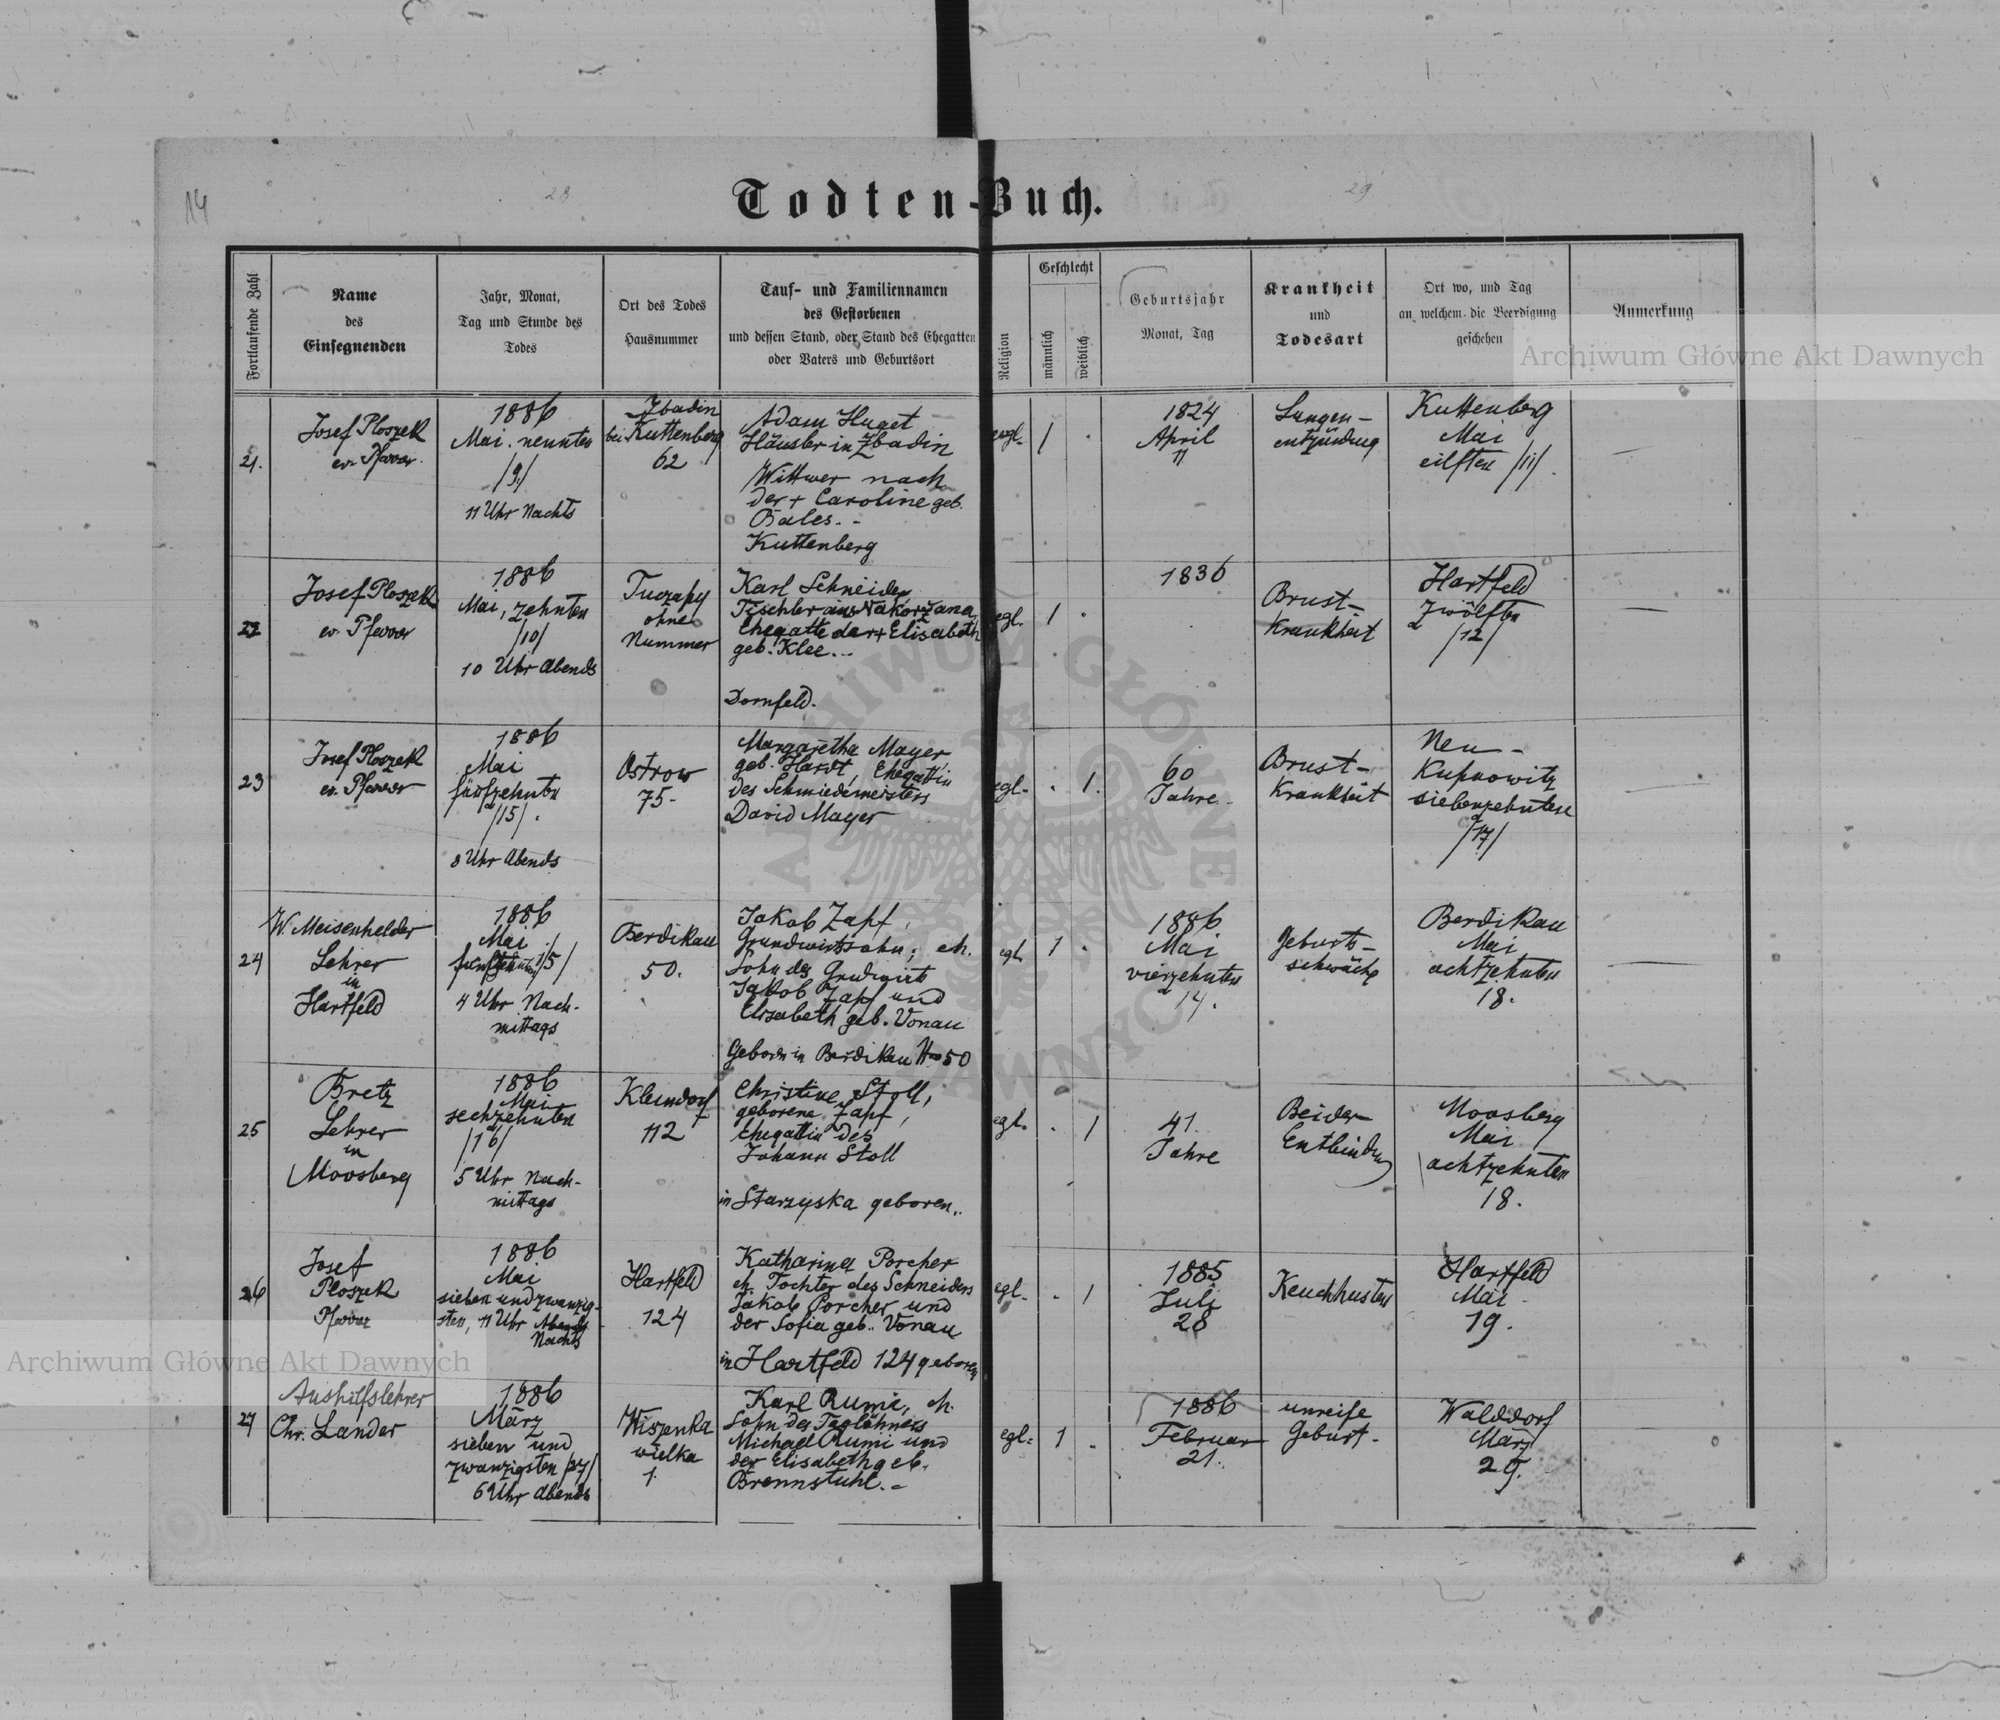 14
28
29
Todten-Buch.
Fortlaufende Zahl
Name
des
Einsegnenden
Jahr, Monat,
Tag und Stunde des
Todes
Ort des Todes
Hausnummer
Tauf- und Familiennamen
des Gestorbenen
und dessen Stand, oder Stand des Ehegatten
oder Vaters und Geburtsort
Religion
Geschlecht
männlich
weiblich
Geburtsjahr
Monat, Tag
Krankheit
und
Todesart
Ort wo, und Tag
an welchem die Beerdigung
geschehen
Anmerkung
Archiwum Główne Akt Dawnych
21.
Josef Ploszek
ev. Pfarrer
1886
Mai neunten
/9/
11 Uhr Nachts
Zbadin
bei Kuttenberg
62
Adam Huget
Häusler in Zbadin
Wittwer nach
der + Caroline geb.
Bales. -
Kuttenberg
evgl.
1
1824
April
11
Lungen-
entzündung
Kuttenberg
Mai
eilften /11/.
22
Josef Ploszek
ev. Pfarrer
1886
Mai, zehnten
/10/
10 Uhr Abends
Tuczapy
ohne
Nummer
Karl Schneider
Tischler aus Nakorzana
Ehegatte der + Elisabeth
geb. Klee. -
Dornfeld.
egl.
1
1836
Brust-
Krankheit
Hartfeld
Zwölften
/12/
23
Josef Ploszek
ev. Pfarrer
1886
Mai
fünfzehnten
/15/.
8 Uhr Abends
Ostrow
75-
Margaretha Mayer,
geb. Hardt, Ehegattin
des Schmiedemeisters
David Mayer
egl.
1.
60
Jahre
Brust-
Krankheit
Neu-
Kupnowitz
siebenzehnten
/17/
24
W. Meisenhelder
Lehrer
in
Hartfeld
1886
Mai
fünfzehnten /15/
4 Uhr Nach-
mittags
Berdikau
50.
Jakob Zapf,
Grundwirtssohn; eh.
Sohn des Grundwirts
Jakob Zapf und
Elisabeth geb. Vonau
Geboren in Berdikau No 50
egl.
1
1886
Mai
vierzehnten
14.
Geburts-
schwäche
Berdikau
Mai
achtzehnten
18.
25
Bretz
Lehrer
in
Moosberg
1886
Mai
sechzehnten
/16/
5 Uhr Nach-
mittags
Kleindorf
112
Christine Stoll,
geborene Zapf,
Ehegattin des
Johann Stoll
in Starzyska geboren..
egl.
1
41.
Jahre
Bei der
Entbindung
Moosberg
Mai
achtzehnten
18.
26
Josef
Ploszek
Pfarrer
1886
Mai
sieben und zwanzig-
sten, 11 Uhr Abends
Nachts
Hartfeld
124
Katharina Porcher
eh. Tochter des Schneiders
Jakob Porcher und
der Sofia geb. Vonau
in Hartfeld 124 geboren
egl.
1
1885
Juli
28
Keuchhusten
Hartfeld
Mai
19.
27
Aushilfslehrer
Chr. Lander
1886
März
sieben und
zwanzigsten /27/
6 Uhr Abends
Wiszenka
wielka
1.
Karl Rumi, eh.
Sohn des Taglöhners
Michael Rumi und
der Elisabeth geb.
Brennstuhl. -
egl.
1
1886
Februar
21.
unreife
Geburt.
Walddorf
März
29.
Archiwum Główne Akt Dawnych
ARCHIWUM GŁÓWNE AKT DAWNYCH